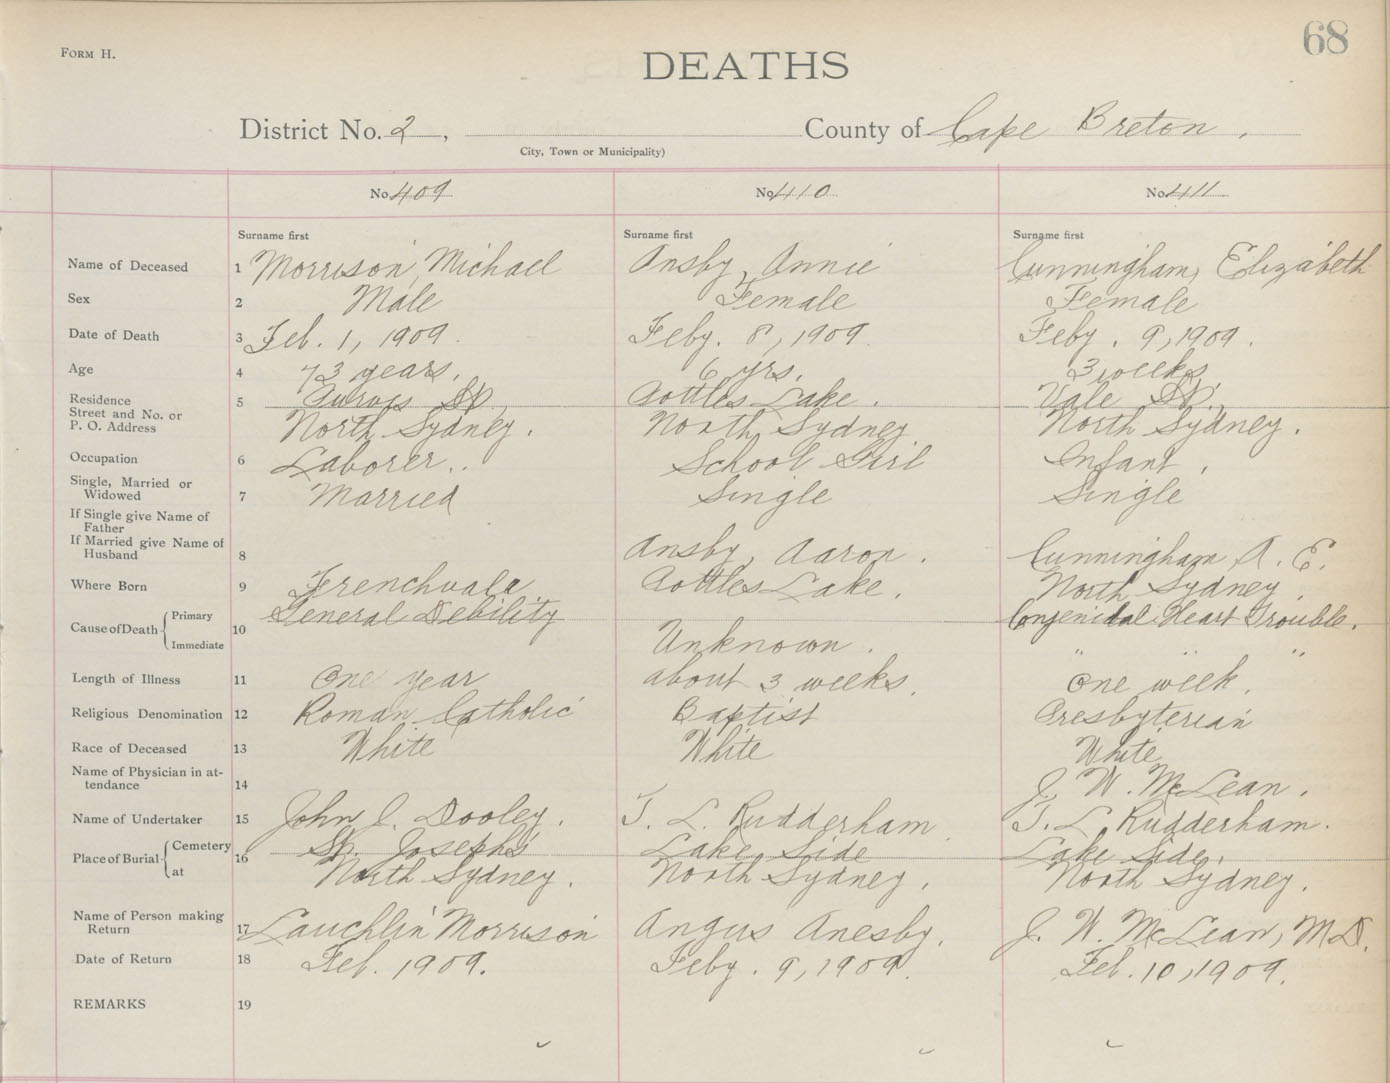 68
FORM H.
DEATHS
District No. 2, County of Cape Breton.
City, Town or Municipality)
No. 409 No. 410 No. 411
Surname first Surname first Surname first
Name of Deceased 1 Morrison, Michael Ansby, Annie Cunningham, Elizabeth
Sex 2 Male Female Female
Date of Death 3 Feb. 1, 1909. Feby. 8, 1909 Feby. 9, 1909.
Age 4 73 years. 6 yrs. 3 weeks
Residence 5 Purves St., Pottles Lake. Vale St.,
Street and No. or
P. O. Address North Sydney. North Sydney North Sydney.
Occupation 6 Laborer.. School Girl Infant.
Single, Married or
Widowed 7 Married Single Single
If Single give Name of
Father
If Married give Name of
Husband 8 Ansby, Aaron. Cunningham A. E.
Where Born 9 Frenchvale Pottles Lake. North Sydney.
Cause of Death Primary 10 General Debility Congenidal Heart Trouble.
Immediate Unknown. " " "
Length of Illness 11 One year about 3 weeks. One week.
Religious Denomination 12 Roman Catholic Baptist Presbyterian
Race of Deceased 13 White White White
Name of Physician in at-
tendance 14 J. W. McLean.
Name of Undertaker 15 John J. Dooley. T. L. Rudderham. T. L. Rudderham.
Place of Burial Cemetery 16 St. Joseph's Lake Side Lake Side.
at North Sydney. North Sydney. North Sydney.
Name of Person making
Return 17 Lauchlin Morrison Angus Anesby. J. W. McLean, M.D.
Date of Return 18 Feb. 1909. Feby. 9, 1909. Feb. 10, 1909.
REMARKS 19